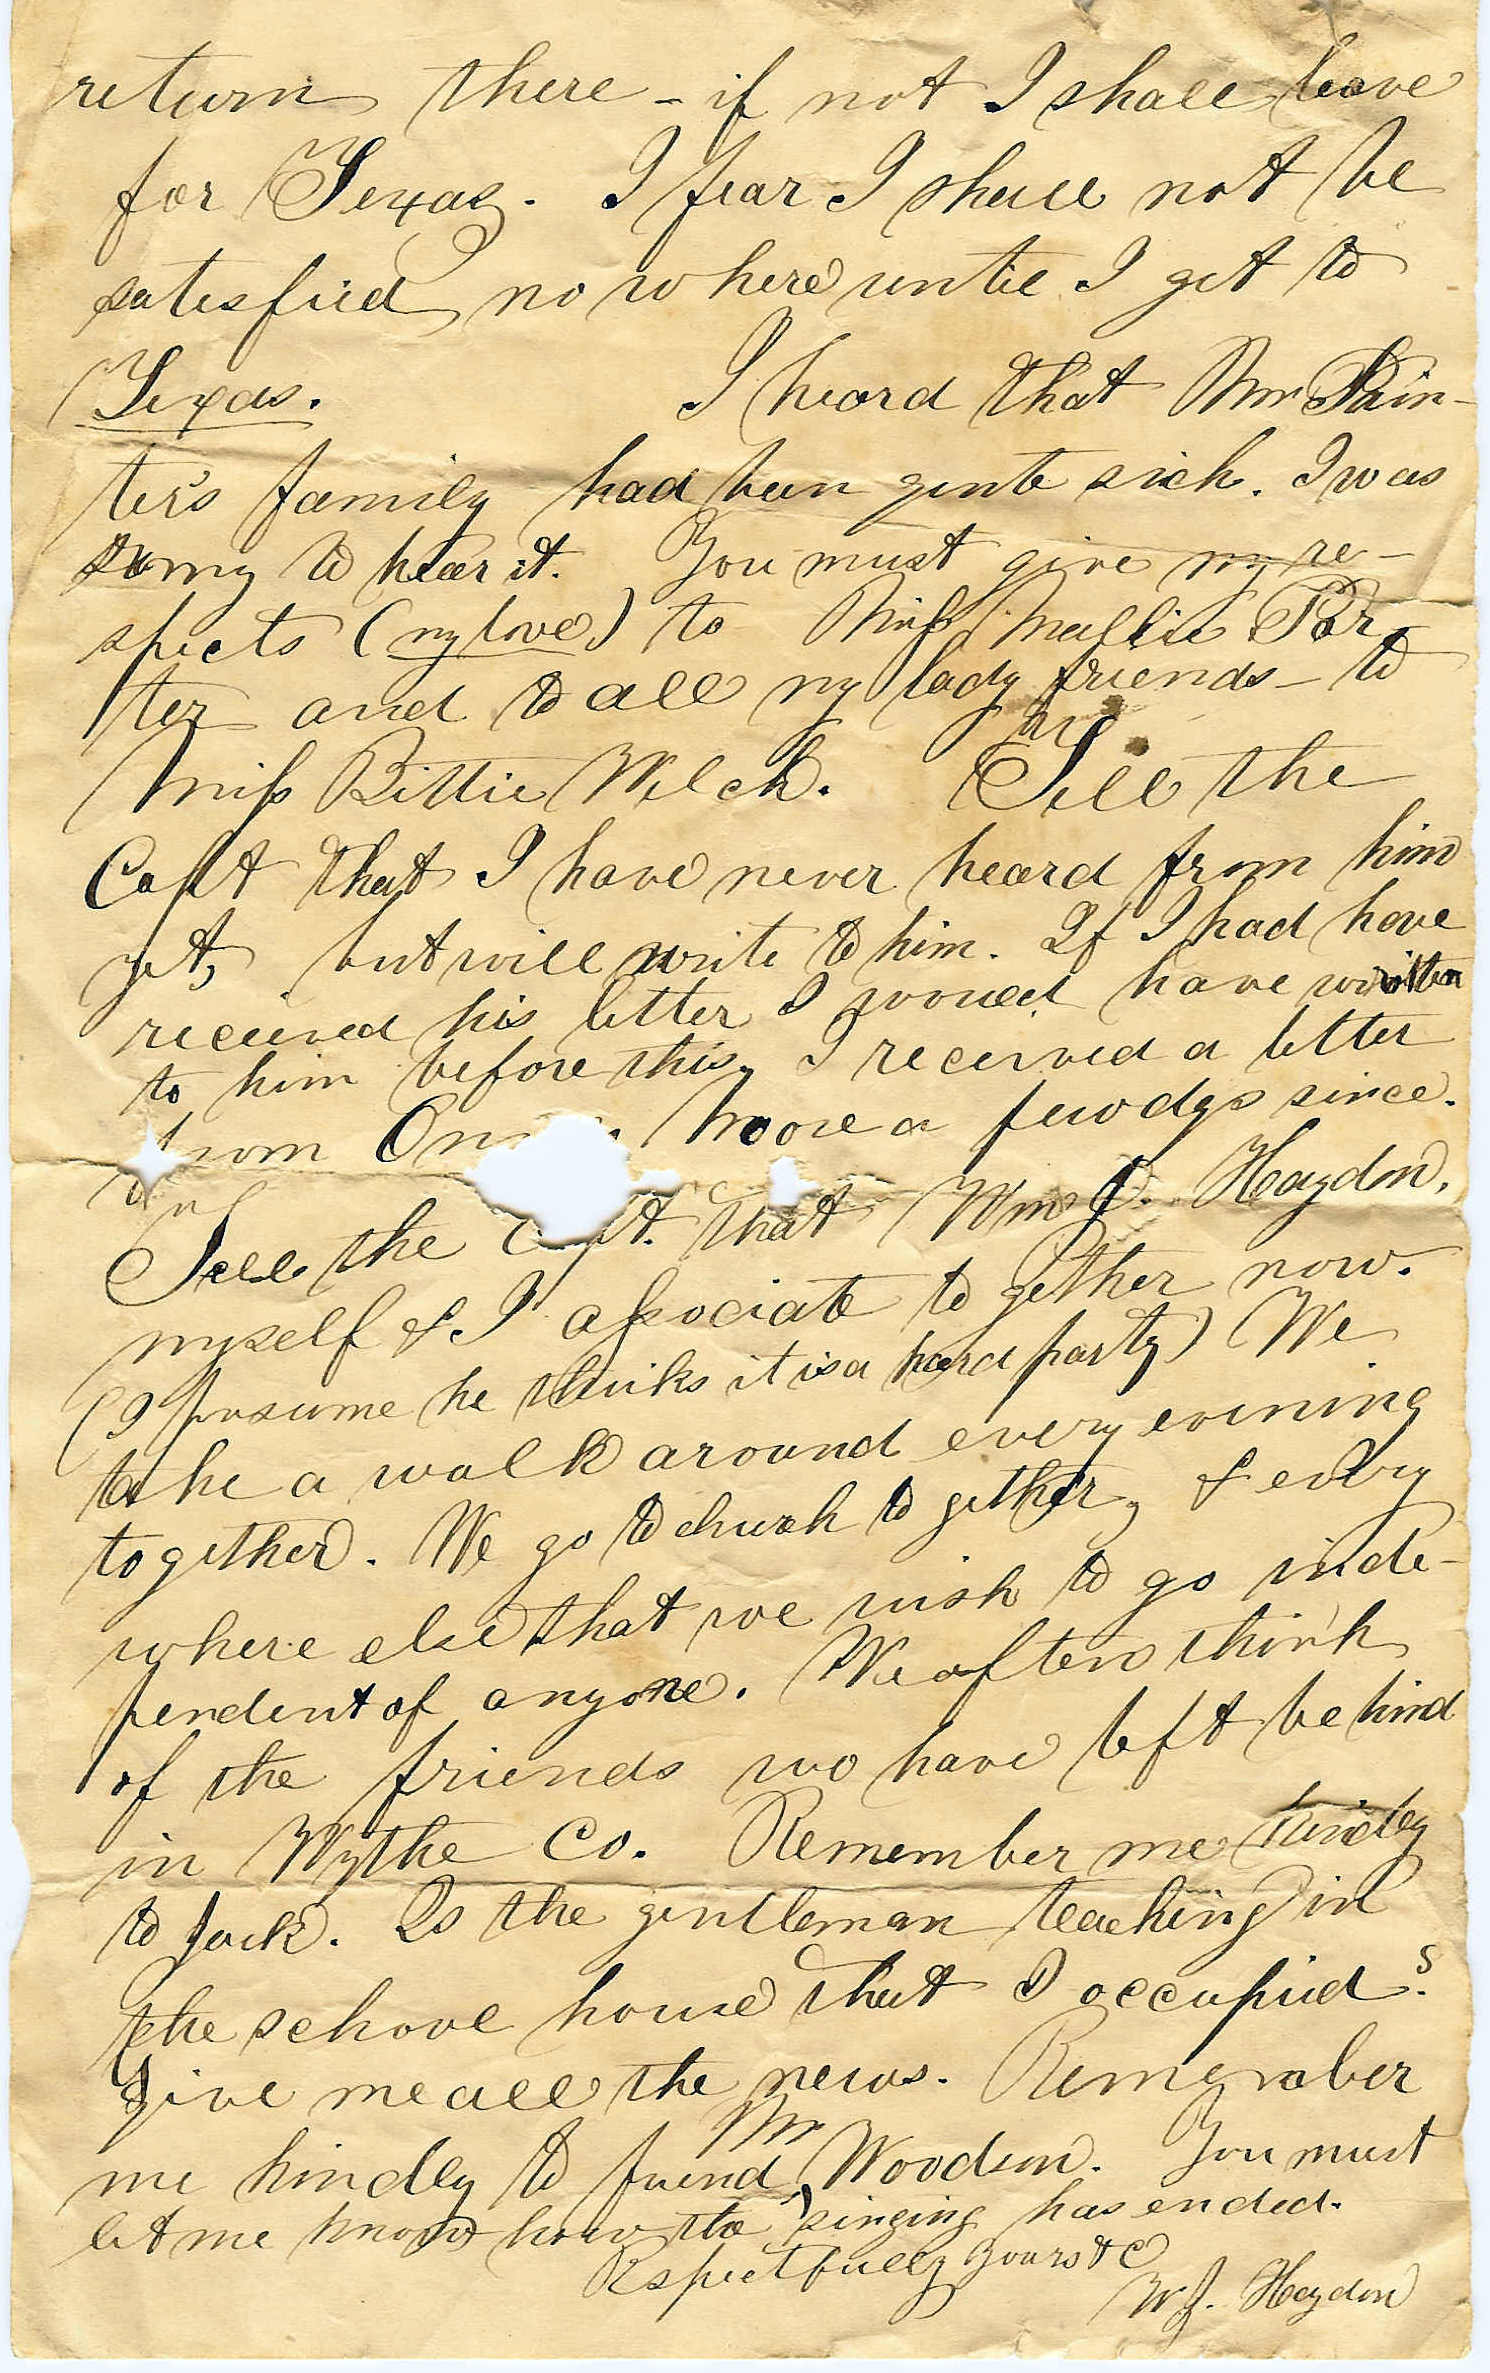 return there - if not I shall leave
for Texas. I fear I shall not be
satisfied no where until I get to
Texas. I heard that Mr Pain-
ter's family had been quite sick. I was
sorry to hear it. You must give my re-
spects (my love) to Miss Mallie Por-
ter and to all my lady friends - to
Miss Bittie Welch. Tell the
Capt that I have never heard from him
yet, but will write to him. If I had have
received his letter I would have written
to him before this. I received a letter
from Moore a few dys since.
Tell the that Wm J. Haydon,
myself & I associate to gether now.
(I presume he thinks it is a hard party) We
take a walk around every evening
together. We go to church to gether, & every
where else that we wish to go inde-
pendent of anyone. We often think
of the friends we have left behind
in Wythe Co. Remember me kindly
to Jack. Is the gentleman teaching in
the school house that I occupied?
Give me all the news. Remember
me kindly to friend Mr Woodson. You must
let me know how the singing has ended.
Respectfully Yours &C
W J. Haydon